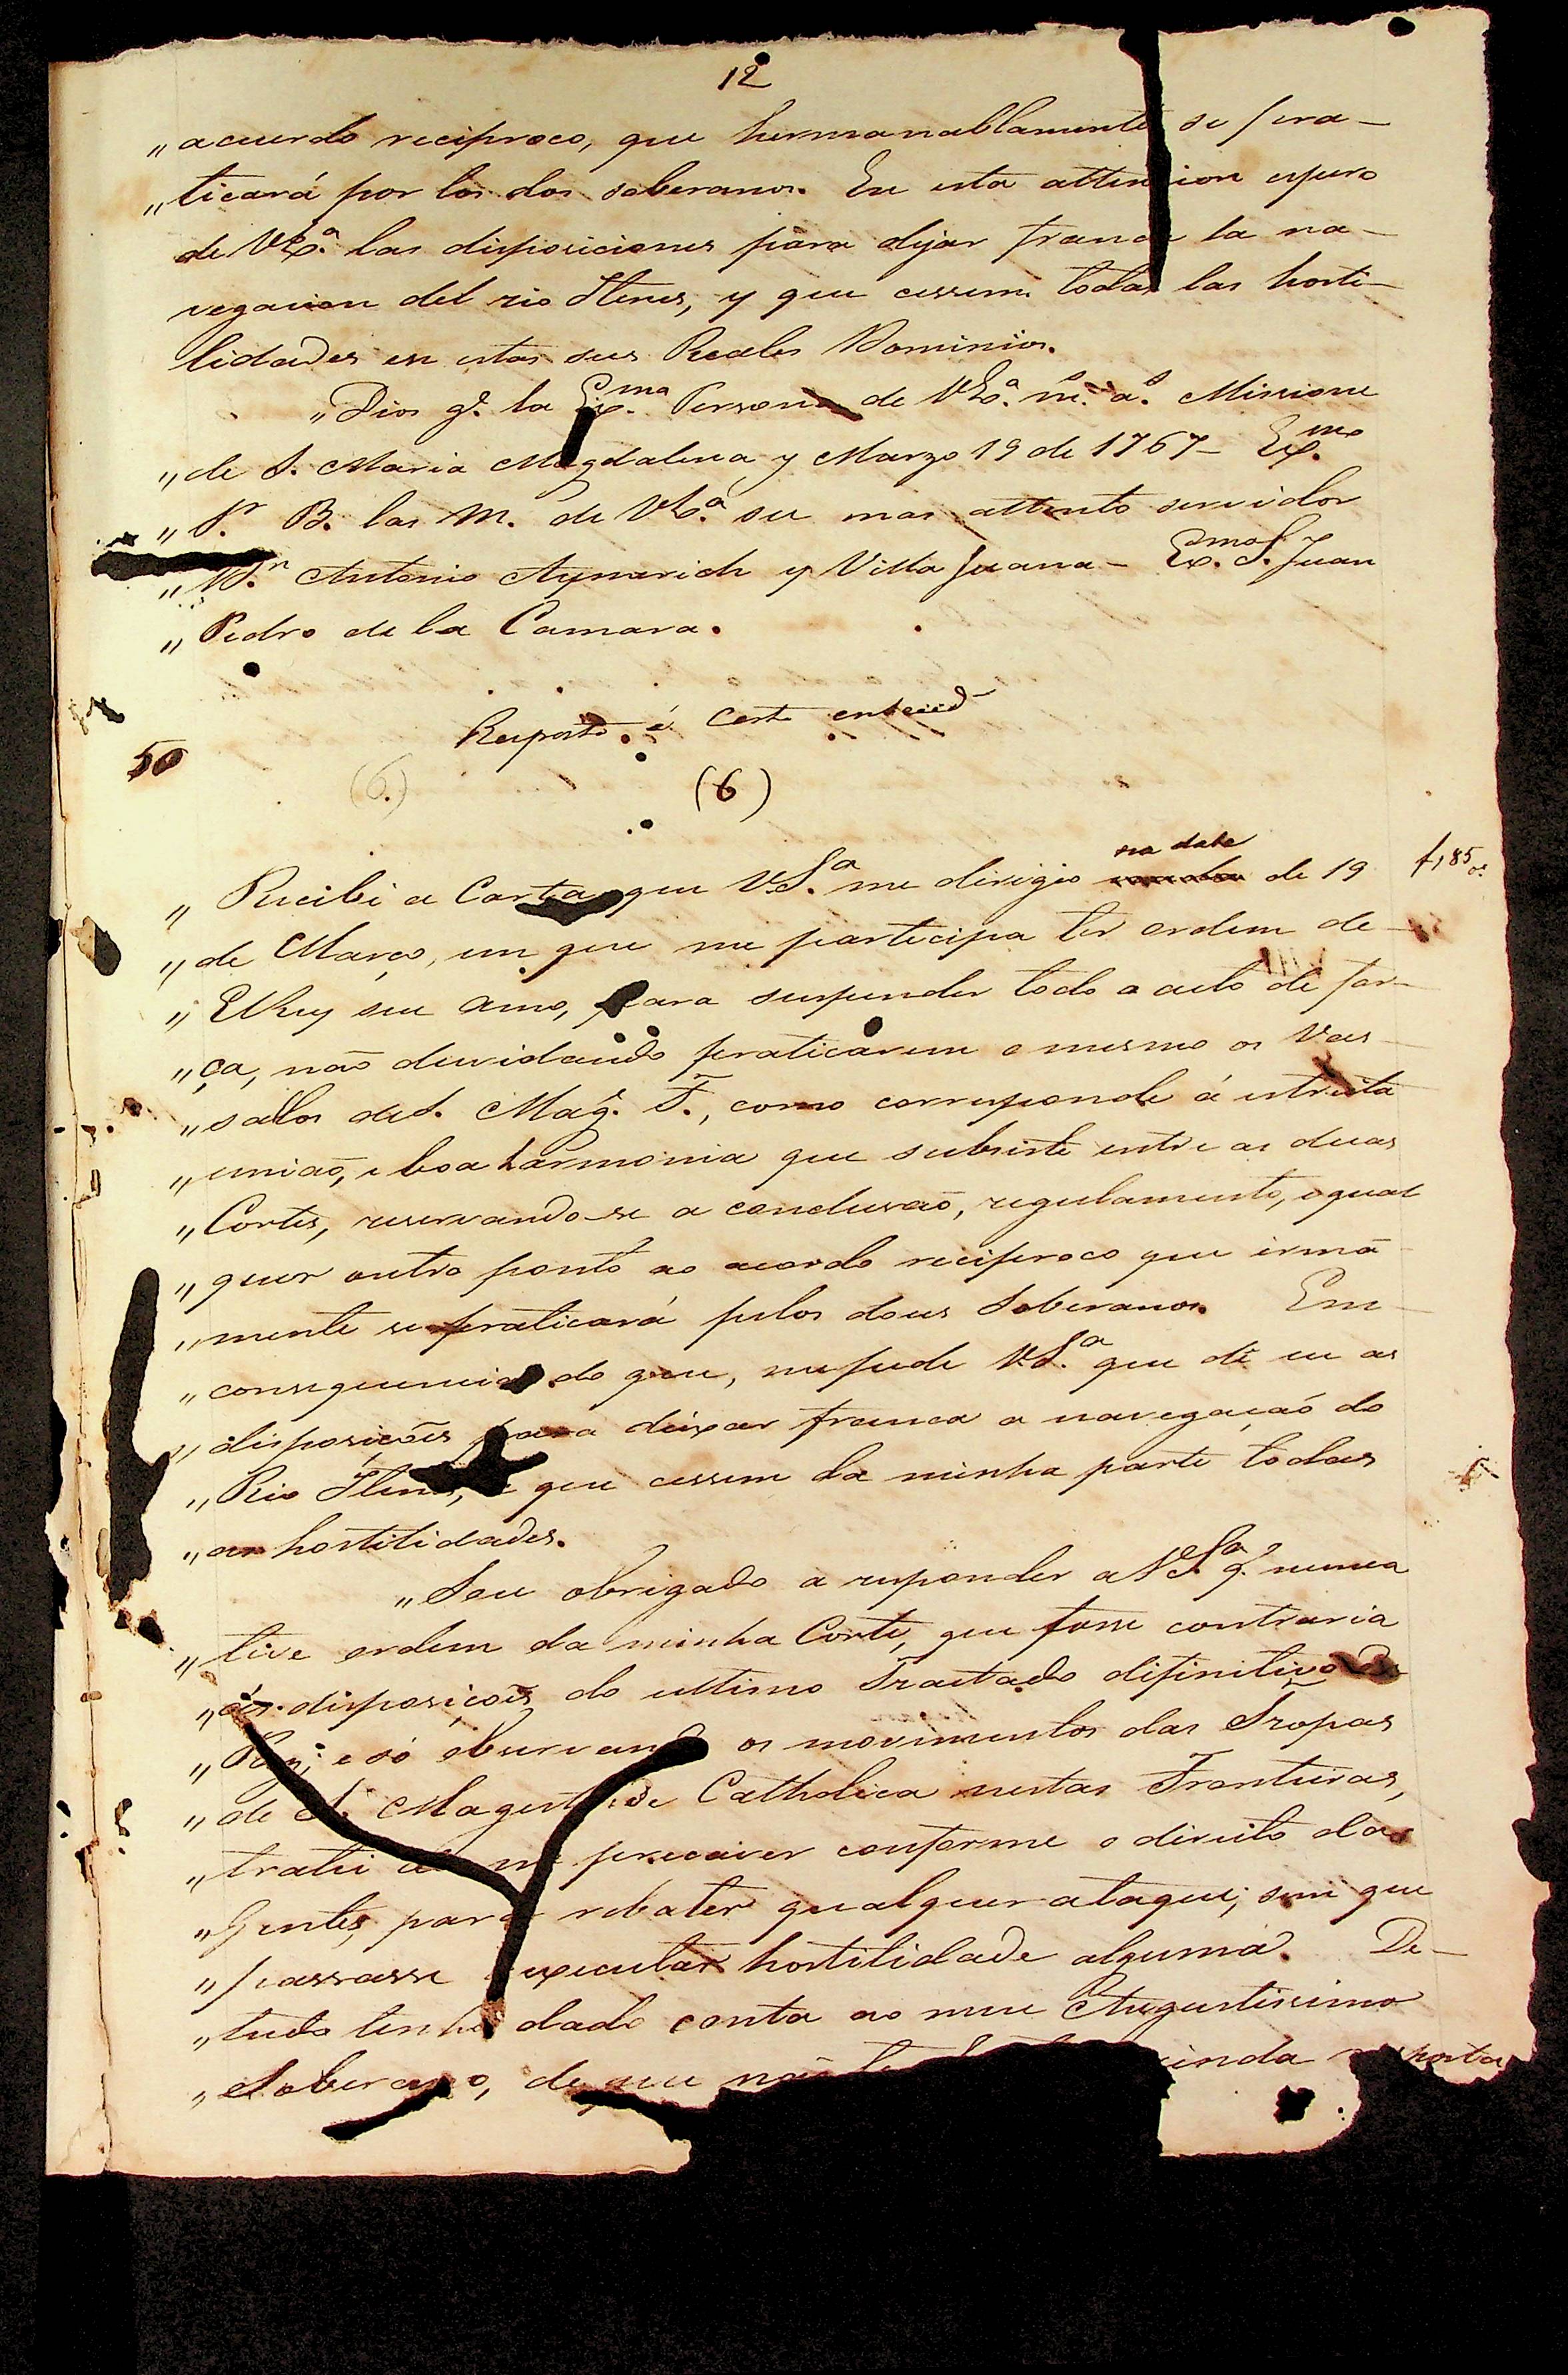 12
„acuerdo reciproco, que hermanablamente se pra-
„ticará por los dos soberanos. En esta attencion espero
de VEx.ª las disposiciones para dejar franca la na-
vegacion del rio Itenes, y que cessem todas las hosti-
lidades en estos sus Reales Dominios.
„Dios g.e la Ex.ma Persona de VEx.ª m.s a.s Missione
„de S. Maria Magdalena y Marzo 19 de 1767 - Ex.mo
„S.r B. las M. de VEx.ª su mas attento servidor
„D.n Antonio Aymerich y Villa Juana - Ex.mo S. Juan
„Pedro de la Camara.
Resposta á Carta
50
(6.) (6)
na data
„Recibi a Carta que V.S.ª me dirigio de 19 f, 85
„de Março, em que me participa ter ordem de
„ElRey seu Amo, para suspender todo o acto de for-
„ça, não duvidando praticarem o mesmo os Vas-
„sallos de S. Mag.e F., como corresponde á estreita
„união, e boa harmonia que subsiste entre as duas
„Cortes, reservando-se a conclusão, regulamento, e qual
„quer outro ponto ao acordo reciproco que irmã
„mente se praticará pelos dous Soberanos. Em
„consequencia do que, me pede V.S.ª que dê eu as
„disposições para deixar franca a navegação do
„Rio Itenes, e que cessem da minha parte todas
„as hostilidades.
„Sou obrigado a responder a V.S.ª q. nunca
„tive ordem da minha Corte, que fosse contraria
„ás disposições do ultimo Tractado difinitivo de
„Paz; e só observando os movimentos das Tropas
„de S. Magestade Catholica nestas Fronteiras,
„tratei de me precaver conforme o direito das
„Gentes, para rebater qualquer ataque; sem que
„passasse a executar hostilidade alguma. De-
„tudo tenho dado conta ao meu Augustissimo
„Soberano, de que não ainda resposta